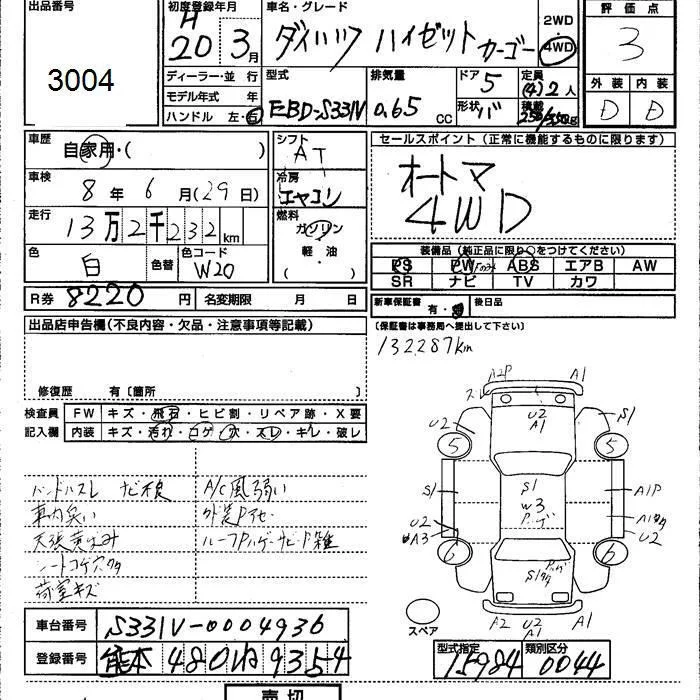 出品番号 初度登録年月 車名・グレード 評価点
3004
H
20 3月 ダイハツ ハイゼット カーゴー 2WD 4WD 3
ディーラー・並 行 型式 排気量 ドア 定員
モデル年式 年 EBD-S331V 0.65 CC 5 (4) 2 人
ハンドル 左・右 形状 バ 積載 kg
外装 内装
D D
車歴 自家用・( ) シフト AT
セールスポイント(正常に機能するものに限ります)
オートマ
4WD
車検 8年 6月(29日) 冷房 エヤコン
走行 13万2千232km 燃料 ガソリン 軽・油 ( )
色 白 色替 色コード W20
装備品(純正品に限り○をつけてください)
PS PW ABS エアB AW
SR ナビ TV カワ
R券 8220円 名変期限 月 日
新車保証書 有・ 後日品
(保証書は事務局へ提出して下さい)
出品店申告欄(不良内容・欠品・注意事項等記載)
132287km
修復歴 有〔箇所 〕
検査員 FW キズ・飛石・ヒビ割・リペア跡・X要
記入欄 内装 キズ・汚れ・コゲ・穴・スレ・キレ・破レ
ハンドルスレ ナビ不良 A/C風弱い
車内臭い 外装Pヤセ
天張黄ばみ
シートコゲ穴クタ
荷室キズ
A2P A1
スレ
U2 U2 A1 S1
5 5
S1 S1 A1P
W3
U2 A3 U2
6 6
スペア A2 U2 A1 A1
車台番号 S331V-0004936
登録番号 熊本 480 ね 9354
型式指定 類別区分
15984 0044
売切